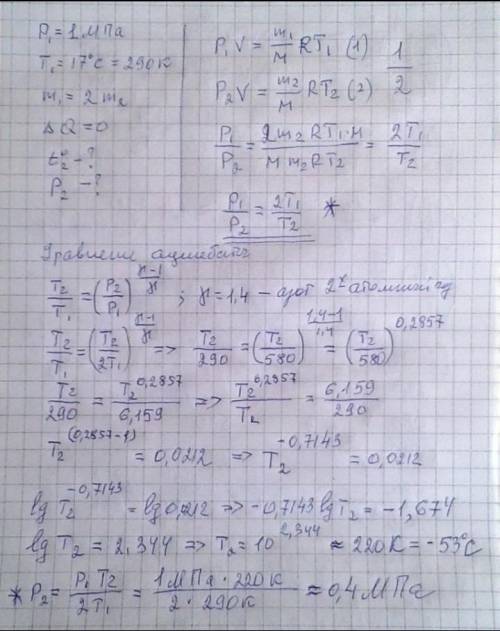 P₁ = 1 МПа
T₁ = 17°C = 290 К
m₁ = 2 m₂
ΔQ = 0
t₂° - ?
P₂ - ?
P₁V = m₁/M RT₁ (1)
P₂V = m₂/M RT₂ (2)
1/2
P₁/P₂ = 2m₂ RT₁·M / M m₂ RT₂ = 2T₁/T₂
P₁/P₂ = 2T₁/T₂ *
Уравнение адиабаты
T₂/T₁ = (P₂/P₁)^(ϰ-1/ϰ) ; ϰ = 1,4 - азот 2ˣ атомный газ
T₂/T₁ = (T₂/2T₁)^(ϰ-1/ϰ) => T₂/290 = (T₂/580)^(1,4-1/1,4) = (T₂/580)^0,2857
T₂/290 = T₂^0,2857/6,159 => T₂^0,2857/T₂ = 6,159/290
T₂^(0,2857-1) = 0,0212 => T₂^-0,7143 = 0,0212
lg T₂^-0,7143 = lg 0,0212 => -0,7143 lg T₂ = -1,674
lg T₂ = 2,344 => T₂ = 10^2,344 ≈ 220 К = -53°C
* P₂ = P₁T₂/2T₁ = 1 МПа · 220 К / 2 · 290 К ≈ 0,4 МПа